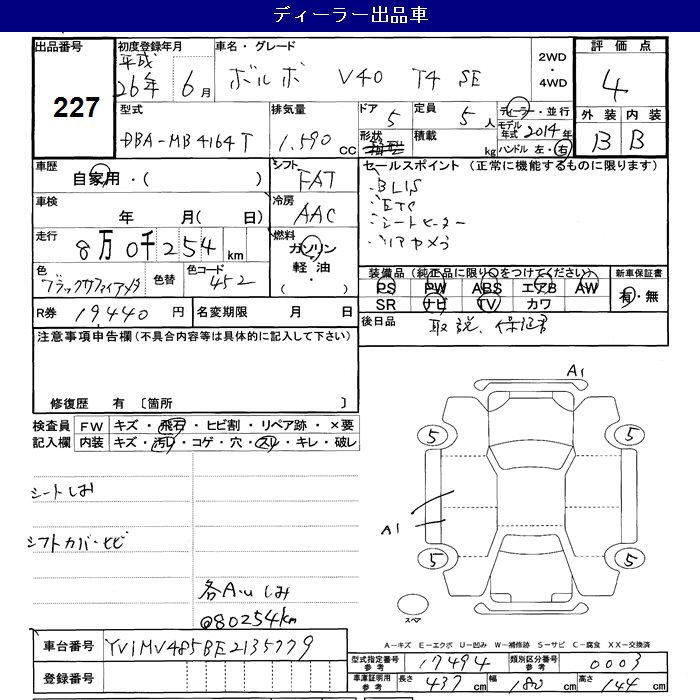 ディーラー出品車
出品番号 227
初度登録年月 平成26年 6月
車名・グレード ボルボ V40 T4 SE
2WD・4WD
評価点 4
外装 B 内装 B
型式 DBA-MB4164T
排気量 1,590 cc
ドア 5 定員 5人
形状 積載 kg
ディーラー・並行
モデル年式 2014年
ハンドル 左・右
車歴 自家用・( )
シフト FAT
車検 年 月( 日)
冷房 AAC
走行 8万0千254 km
燃料 ガソリン・軽油・
色 ブラックサファイアメタ 色替 色コード 452
R券 19440円 名変期限 月 日
セールスポイント(正常に機能するものに限ります)
・BLIS
・ETC
・シートヒーター
・リアカメラ
装備品(純正品に限り○をつけてください) 新車保証書
PS PW ABS エアB AW 有・無
SR ナビ TV カワ
後日品 取説、保証書
注意事項申告欄(不具合内容等は具体的に記入して下さい)
修復歴 有 〔箇所 〕
検査員記入欄 FW キズ・飛石・ヒビ割・リペア跡・×要
内装 キズ・汚れ・コゲ・穴・スレ・キレ・破レ
シートしわ
シフトカバーヒビ
各A・Uしみ
@80254km
A1
5
5
A1
5
5
スペア
A-キズ E-エクボ U-凹み W-補修跡 S-サビ C-腐食 XX-交換済
車台番号 YV1MV485BE2135779
登録番号
型式指定番号参考 17494 類別区分番号参考 0003
車庫証明用参考 長さ 437cm 幅 180cm 高さ 144cm